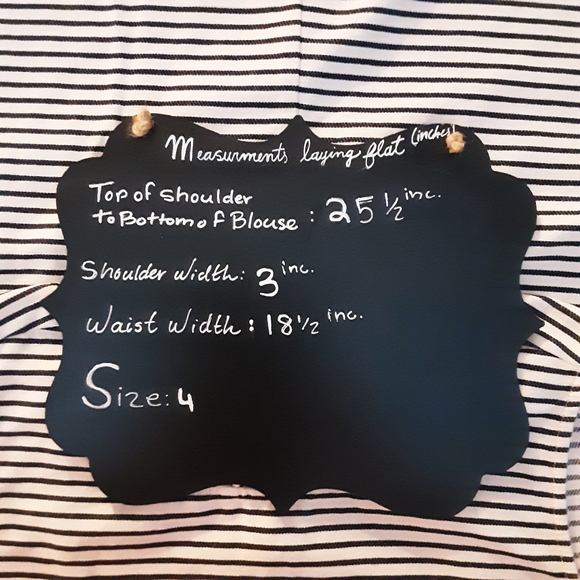 Measurments laying flat (inches)
Top of shoulder
to Bottom of Blouse : 25 1/2 inc.
Shoulder width: 3 inc.
Waist Width : 18 1/2 inc.
Size: 4